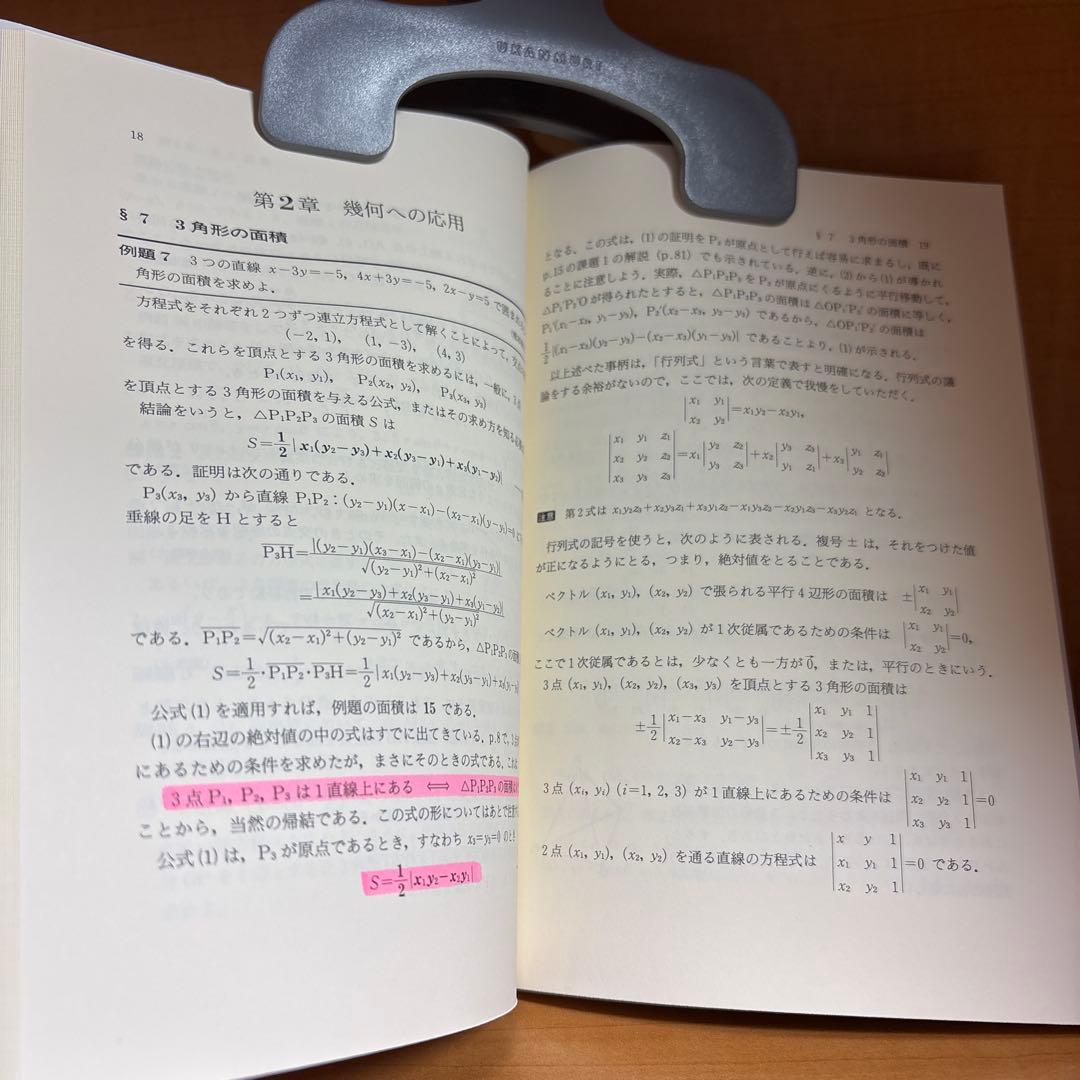 18
第2章 幾何への応用
§7 3角形の面積
例題7 3つの直線 x−3y=−5, 4x+3y=−5, 2x−y=5 で囲まれ
角形の面積を求めよ.
方程式をそれぞれ2つずつ連立方程式として解くことによって,
(−2, 1), (1, −3), (4, 3)
を得る. これらを頂点とする3角形の面積を求めるには, 一般に, 3点
P₁(x₁, y₁), P₂(x₂, y₂), P₃(x₃, y₃)
を頂点とする3角形の面積を与える公式, またはその求め方を知る
結論をいうと, △P₁P₂P₃ の面積 S は
S=1/2|x₁(y₂−y₃)+x₂(y₃−y₁)+x₃(y₁−y₂)|
である. 証明は次の通りである.
P₃(x₃, y₃) から直線 P₁P₂:(y₂−y₁)(x−x₁)−(x₂−x₁)(y−y₁)=0
垂線の足を H とすると
P₃H=|(y₂−y₁)(x₃−x₁)−(x₂−x₁)(y₃−y₁)|/√((y₂−y₁)²+(x₂−x₁)²)
=|x₁(y₂−y₃)+x₂(y₃−y₁)+x₃(y₁−y₂)|/√((x₂−x₁)²+(y₂−y₁)²)
である. P₁P₂=√((x₂−x₁)²+(y₂−y₁)²) であるから, △P₁P₂P₃ の面
S=1/2·P₁P₂·P₃H=1/2|x₁(y₂−y₃)+x₂(y₃−y₁)+x₃(y₁−
公式(1)を適用すれば, 例題の面積は 15 である.
(1)の右辺の絶対値の中の式はすでに出てきている. p.8で, 3
にあるための条件を求めたが, まさにそのときの式である. これは
3点 P₁, P₂, P₃ は1直線上にある ⟺ △P₁P₂P₃ の面積
ことから, 当然の帰結である. この式の形についてはあとで
公式(1)は, P₃ が原点であるとき, すなわち x₃=y₃=0 のとき
S=1/2|x₁y₂−x₂y₁|
§7 3角形の面積 19
となる. この式は, (1)の証明を P₃ が原点として行えば容易に求まるし, 既に
p.15の課題1の解説 (p.81) でも示されている. 逆に, (2)から(1)が導かれ
ることに注意しよう. 実際, △P₁P₂P₃ を P₃ が原点にくるように平行移動して,
△P₁′P₂′O が得られたとすると, △P₁P₂P₃ の面積は △OP₁′P₂′ の面積に等しく,
P₁′(x₁−x₃, y₁−y₃), P₂′(x₂−x₃, y₂−y₃) であるから, △OP₁′P₂′ の面積は
1/2|(x₁−x₃)(y₂−y₃)−(x₂−x₃)(y₁−y₃)| であることより, (1)が示される.
以上述べた事柄は, 「行列式」という言葉で表すと明確になる. 行列式の議
論をする余裕がないので, ここでは, 次の定義で我慢をしていただく.
|x₁ y₁; x₂ y₂|=x₁y₂−x₂y₁,
|x₁ y₁ z₁; x₂ y₂ z₂; x₃ y₃ z₃|=x₁|y₂ z₂; y₃ z₃|+x₂|y₃ z₃; y₁ z₁|+x₃|y₁ z₁; y₂ z₂|
注意 第2式は x₁y₂z₃+x₂y₃z₁+x₃y₁z₂−x₁y₃z₂−x₂y₁z₃−x₃y₂z₁ となる.
行列式の記号を使うと, 次のように表される. 複号 ± は, それをつけた値
が正になるようにとる, つまり, 絶対値をとることである.
ベクトル (x₁, y₁), (x₂, y₂) で張られる平行4辺形の面積は ±|x₁ y₁; x₂ y₂|
ベクトル (x₁, y₁), (x₂, y₂) が1次従属であるための条件は |x₁ y₁; x₂ y₂|=0,
ここで1次従属であるとは, 少なくとも一方が 0⃗, または, 平行のときにいう.
3点 (x₁, y₁), (x₂, y₂), (x₃, y₃) を頂点とする3角形の面積は
±1/2|x₁−x₃ y₁−y₃; x₂−x₃ y₂−y₃|=±1/2|x₁ y₁ 1; x₂ y₂ 1; x₃ y₃ 1|
3点 (xᵢ, yᵢ) (i=1, 2, 3) が1直線上にあるための条件は |x₁ y₁ 1; x₂ y₂ 1; x₃ y₃ 1|=0
2点 (x₁, y₁), (x₂, y₂) を通る直線の方程式は |x y 1; x₁ y₁ 1; x₂ y₂ 1|=0 である.